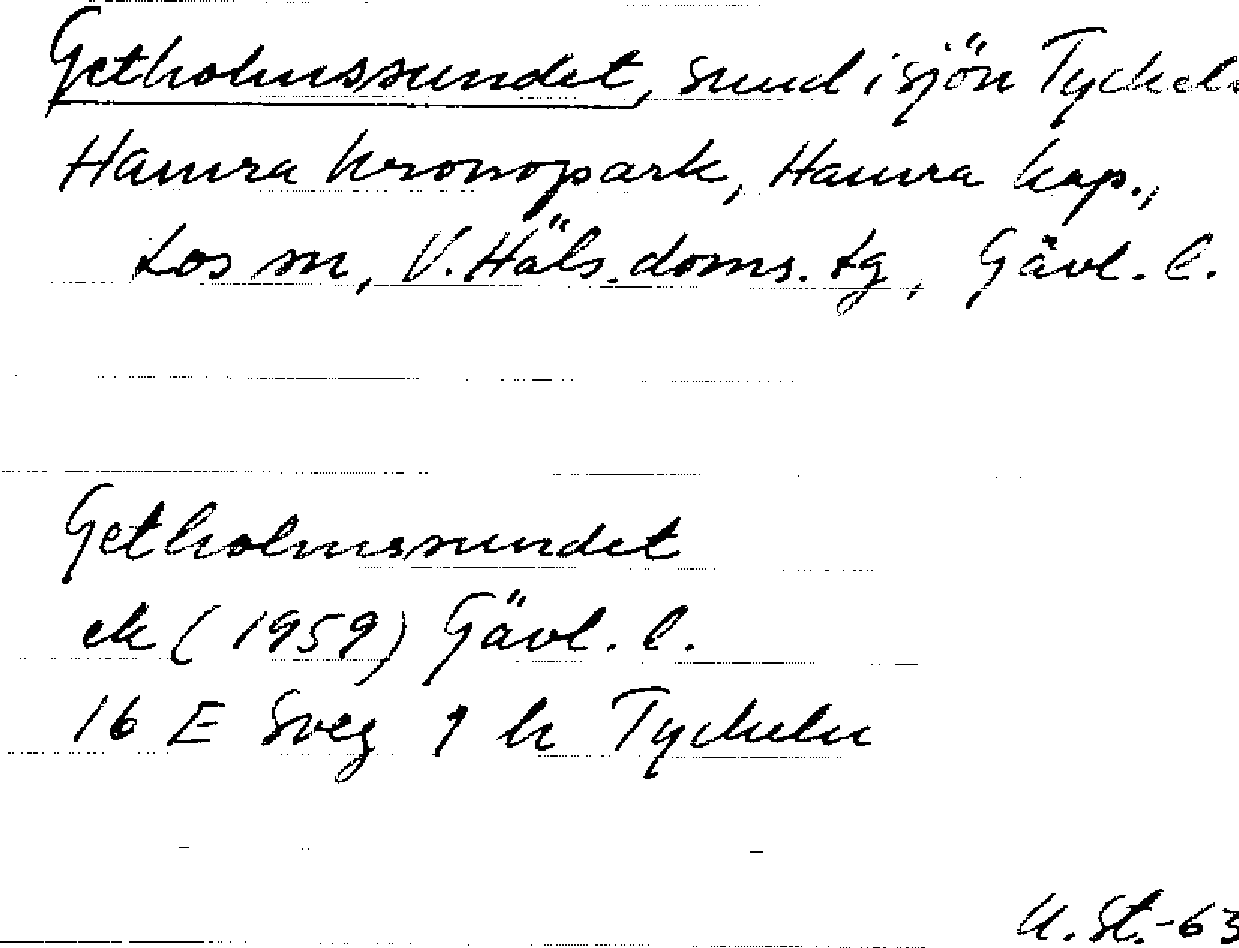 Getholmssundet, sund i sjön Tyckeln
Hamra kronopark, Hamra kap.,
Los sn, V. Häls. doms. tg, Gävl. l.
Getholmssundet
ek (1959) Gävl. l.
16 E Sveg 1 h Tyckeln
U. St.-63